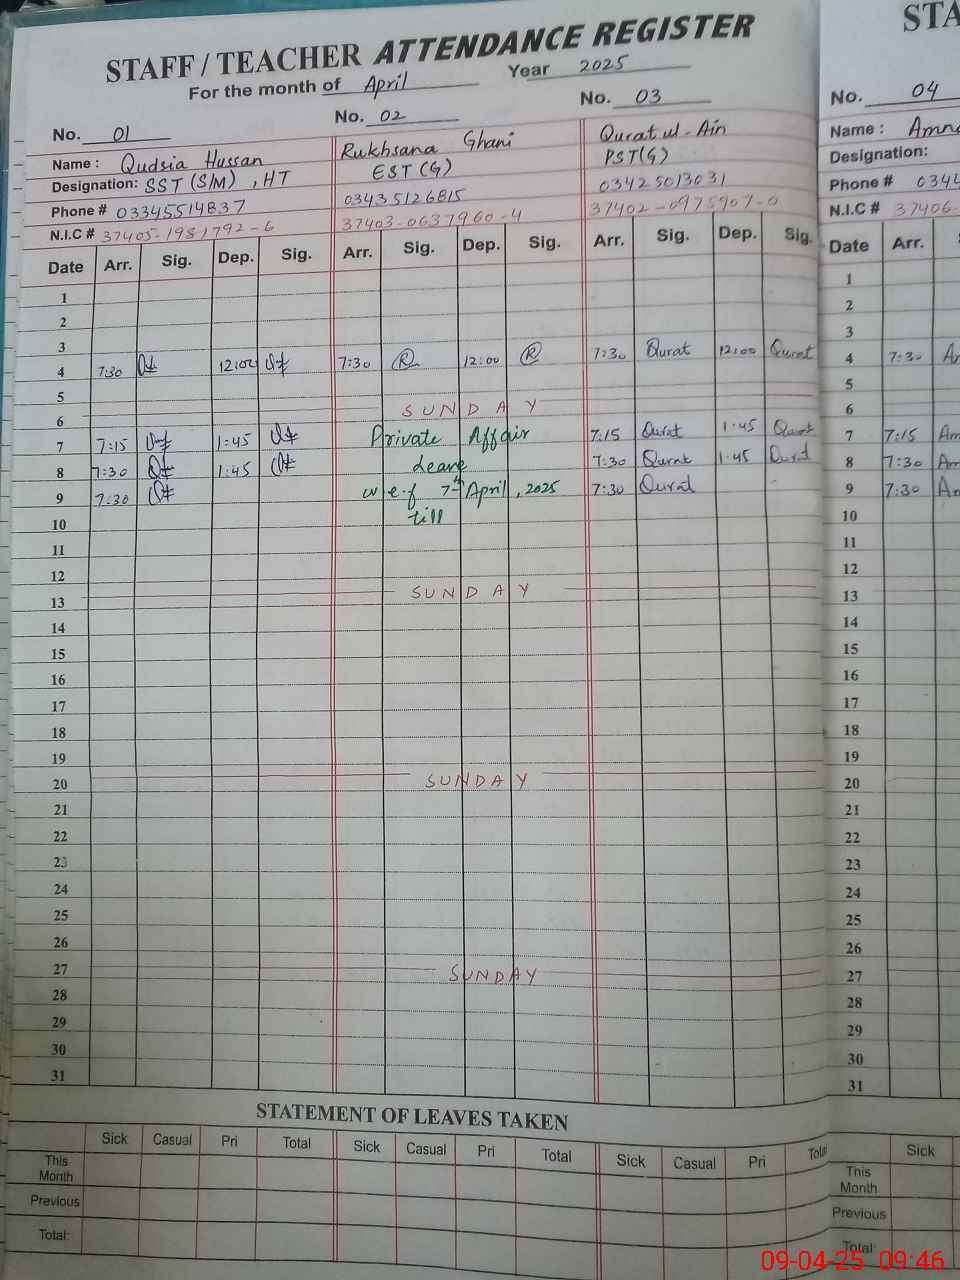 STAFF / TEACHER ATTENDANCE REGISTER
For the month of April Year 2025
No. 01 No. 02 No. 03
Name : Qudsia Hussan Rukhsana Ghani Qurat ul - Ain
Designation: SST (S/M) , HT EST (G) PST(G)
Phone # 03345514837 03435126815 03425013031
N.I.C # 37405-1981792-6 37403-0637960-4 37402-0975907-0
Date Arr. Sig. Dep. Sig. Arr. Sig. Dep. Sig. Arr. Sig. Dep. Sig.
1
2
3
4 7:30 12:00 7:30 R 12:00 R 7:30 Qurat 12:00 Qurat
5
6 SUNDAY
7 7:15 1:45 Private Affair 7:15 Qurat 1:45 Qurat
8 7:30 1:45 Leave 7:30 Qurat 1:45 Qurat
9 7:30 w.e.f 7th April, 2025 7:30 Qurat
10 till
11
12
13 SUNDAY
14
15
16
17
18
19
20 SUNDAY
21
22
23
24
25
26
27 SUNDAY
28
29
30
31
STATEMENT OF LEAVES TAKEN
Sick Casual Pri Total Sick Casual Pri Total Sick Casual Pri Total
This Month
Previous
Total:
STA
No. 04
Name : Amna
Designation:
Phone # 034
N.I.C # 37406-
Date Arr.
1
2
3
4 7:30
5
6
7 7:15
8 7:30
9 7:30
10
11
12
13
14
15
16
17
18
19
20
21
22
23
24
25
26
27
28
29
30
31
Sick
This Month
Previous
Total:
09-04-25 09:46